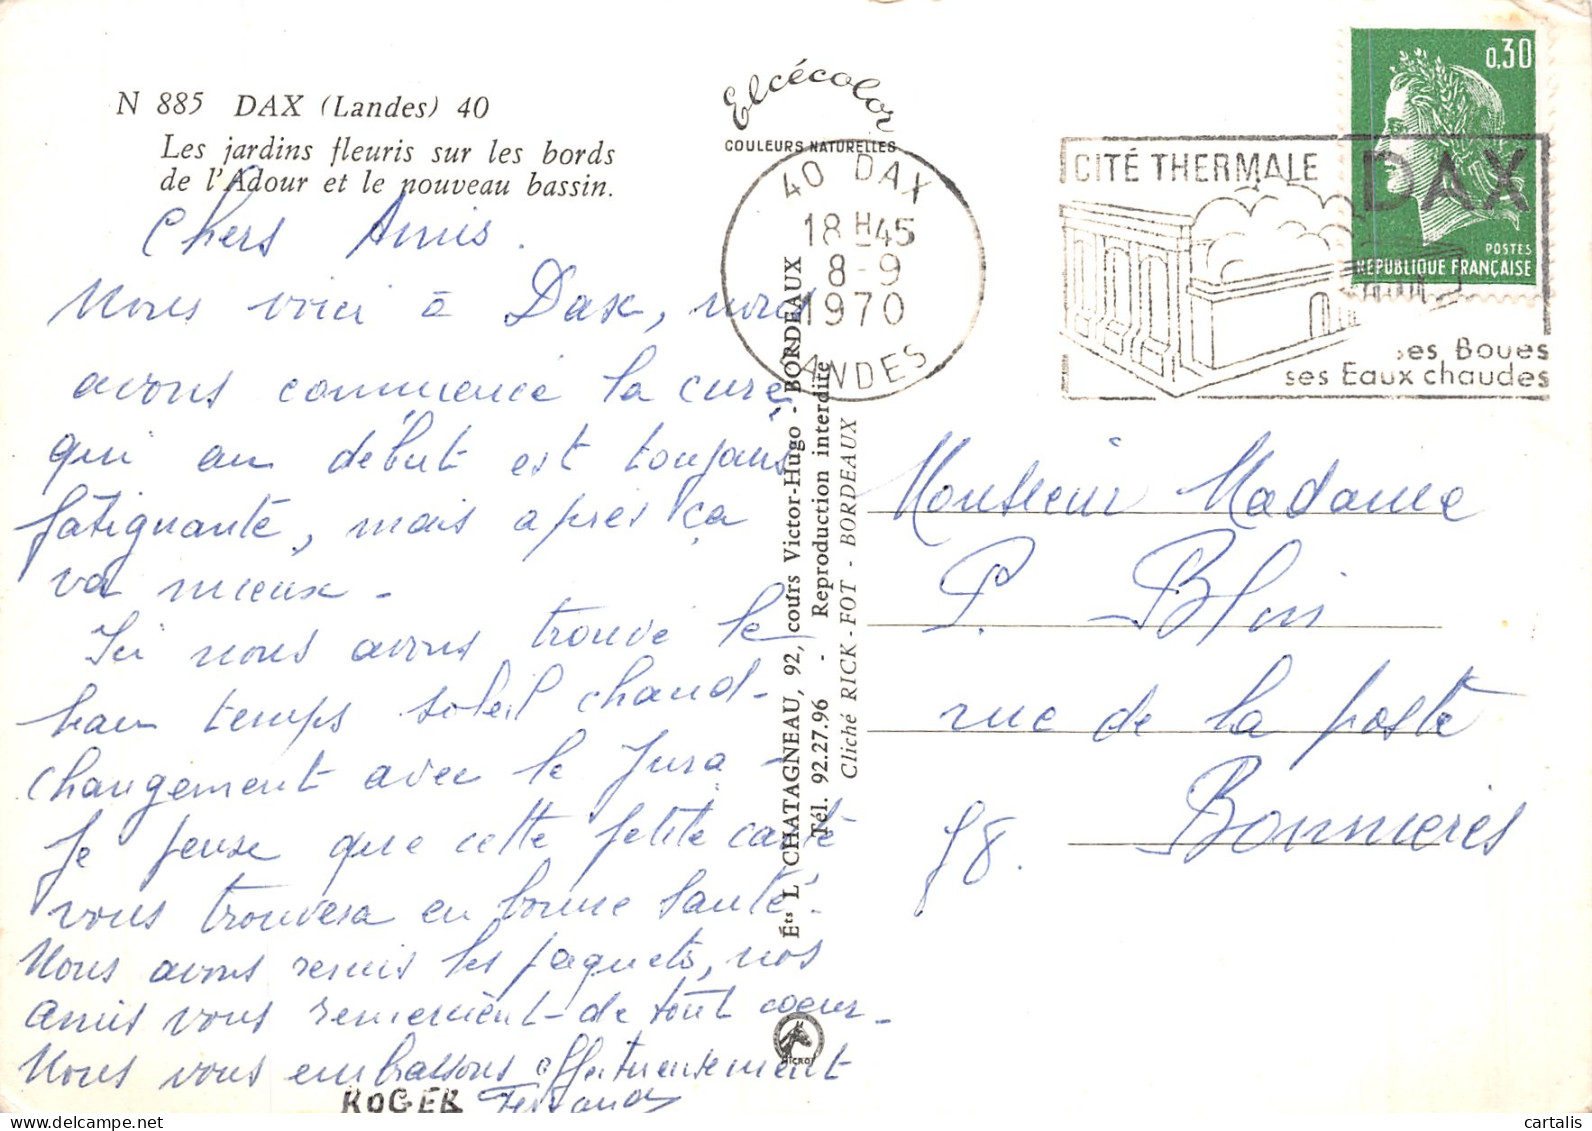 N 885 DAX (Landes) 40
Les jardins fleuris sur les bords
de l'Adour et le nouveau bassin.
Elcécolor
COULEURS NATURELLES
40 DAX
18 H 45
8-9
1970
LANDES
CITÉ THERMALE DAX
ses Boues
ses Eaux chaudes
0,30
POSTES
RÉPUBLIQUE FRANÇAISE
Chers Amis.
Nous voici à Dax, nous
avons commencé la cure
qui au début est toujours
fatiguante, mais après ça
va mieux -
Ici nous avons trouvé le
beau temps soleil chaud -
changement avec le Jura -
Je pense que cette petite carte
vous trouvera en bonne santé.
Nous avons remis les paquets, nos
amis vous remercient de tout coeur -
Nous vous embrassons affectueusement
ROGER Fernande
Éts L CHATAGNEAU, 92, cours Victor-Hugo - BORDEAUX
Tél. 92.27.96 - Reproduction interdite
Cliché RICK-FOT - BORDEAUX
Monsieur Madame
P. Blin
rue de la poste
Bonnieres
78.
cartalis